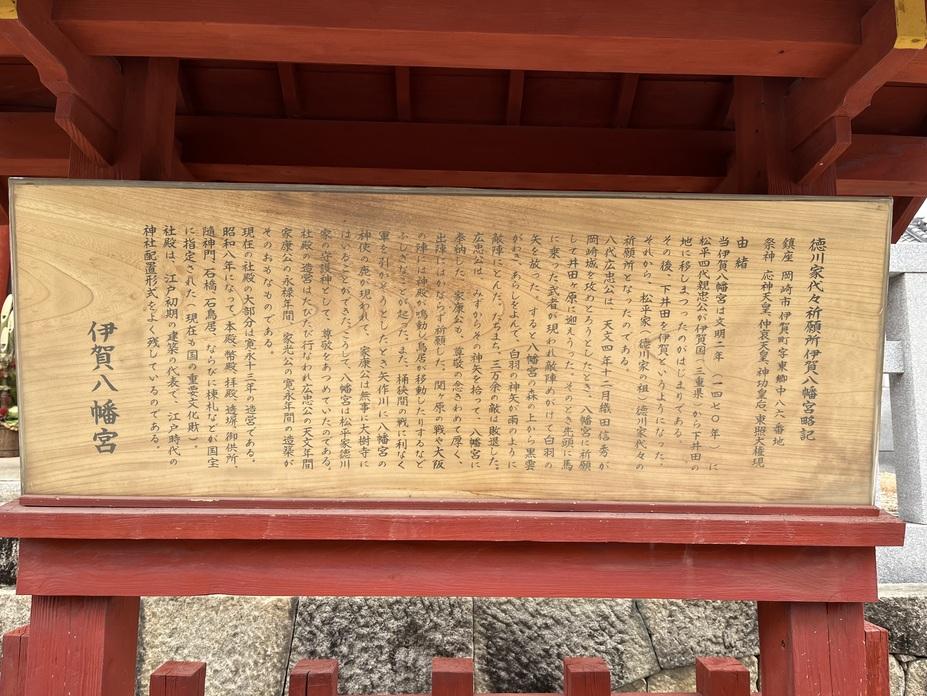 徳川家代々祈願所伊賀八幡宮略記
鎮座 岡崎市伊賀町字東郷中八六番地
祭神 応神天皇、仲哀天皇、神功皇后、東照大権現
由緒
当伊賀八幡宮は文明二年(一四七〇年)に
松平四代親忠公が伊賀国(三重県)から下井田の
地に移しまつったのがはじまりである。
その後、下井田を伊賀というようになった。
それから、松平家(徳川家の祖)徳川家代々の
祈願所となったのである。
八代広忠公は、天文四年十二月織田信秀が
岡崎城を攻めとろうとしたとき、八幡宮に祈願
して井田ヶ原に迎えうった。そのとき先頭に馬
に乗った武者が現われ敵陣めがけて白羽の
矢を放った。すると八幡宮の森の上から黒雲
がわき、あらしをよんで、白羽の神矢が雨のように
敵陣にとんだ。たちまち二万余の敵は敗退した。
広忠公は、みずからその神矢を拾って、八幡宮に
奉納した。家康公も、尊敬の念きわめて厚く、
出陣毎にかならず祈願した。関ヶ原の戦や大阪
の陣には神殿が鳴動し鳥居が移動したりするなど
ふしぎなことが起った。また、桶狭間の戦に利なく
軍を引かせようとしたとき矢作川に八幡宮の
神使の鹿が現われて、家康公は無事に大樹寺に
はいることができた。こうして、八幡宮は松平家徳川
家の守護神として、尊敬をあつめていたのである。
社殿の造営はたびたび行なわれ広忠公の天文年間
家康公の永禄年間、家光公の寛永年間の造築が
そのおもなものである。
現在の社殿の大部分は寛永十三年の造営である。
昭和八年になって、本殿、幣殿、拝殿、透塀、御供所、
隨神門、石橋、石鳥居、ならびに棟札などが国宝
に指定された(現在も国の重要文化財)
社殿は、江戸初期の建築の代表で、江戸時代の
神社配置形式をよく残しているのである。
伊賀八幡宮